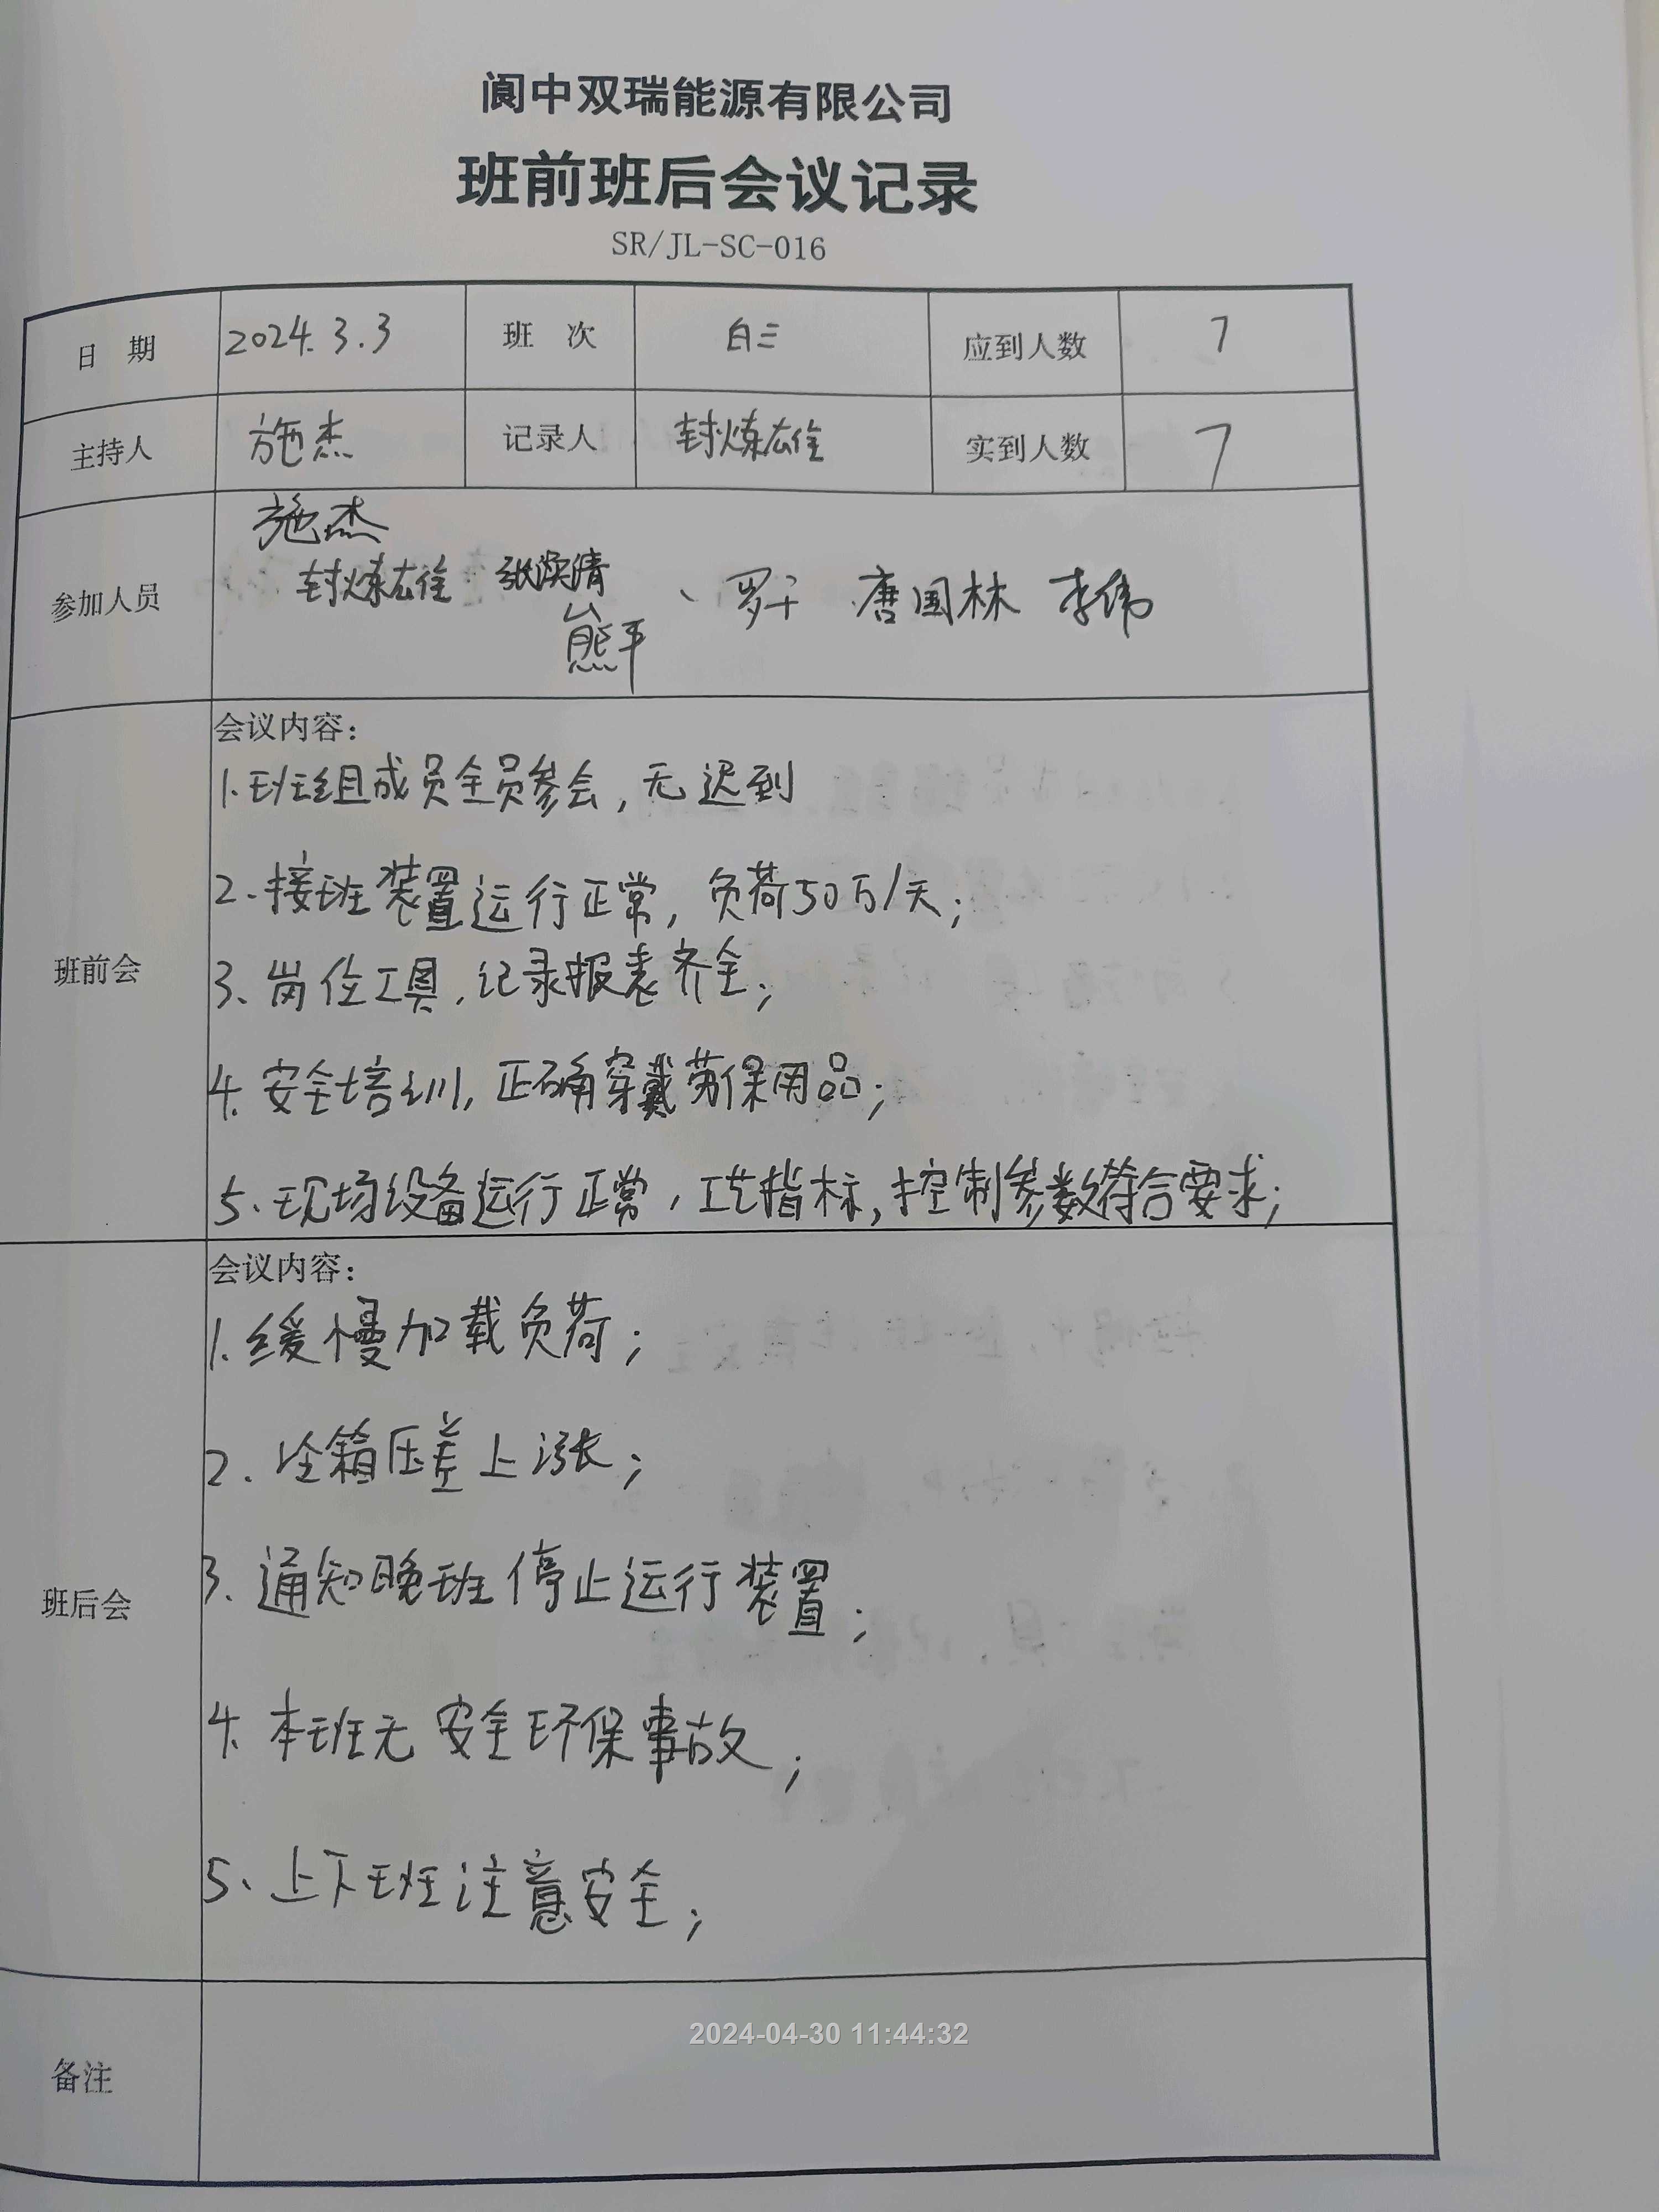 阆中双瑞能源有限公司
班前班后会议记录
SR/JL-SC-016
日 期 2024.3.3 班 次 白三 应到人数 7
主持人 施杰 记录人 封炼雄 实到人数 7
施杰
参加人员 封炼雄 罗干 唐国林 李伟
熊平
会议内容：
1.班组成员全员参会，无迟到
2.接班装置运行正常，负荷50万/天；
3、岗位工具，记录报表齐全；
班前会
4.安全培训，正确穿戴劳保用品；
5、现场设备运行正常，工艺指标，控制参数符合要求；
会议内容：
1.缓慢加载负荷；
2.冷箱压差上涨；
3.通知晚班停止运行装置；
班后会
4.本班无安全环保事故；
5、上下班注意安全；
2024-04-30 11:44:32
备注